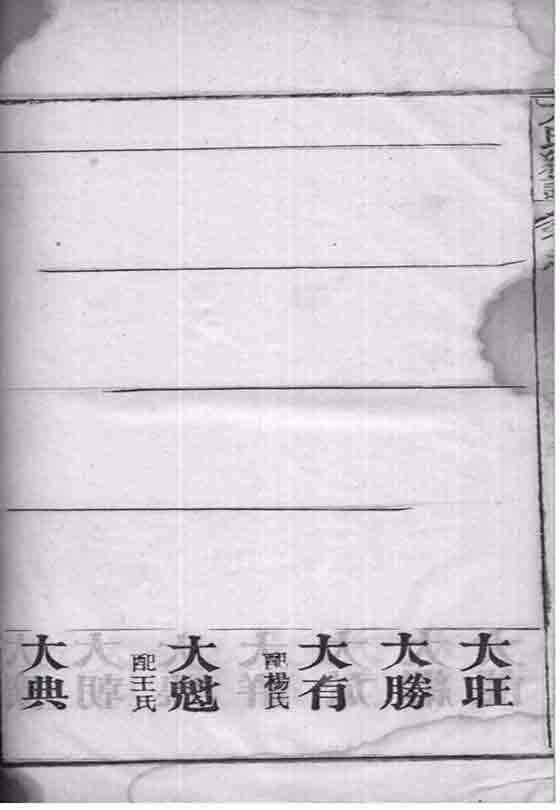 大旺
大勝
大有
配楊氏
大魁
配王氏
大典